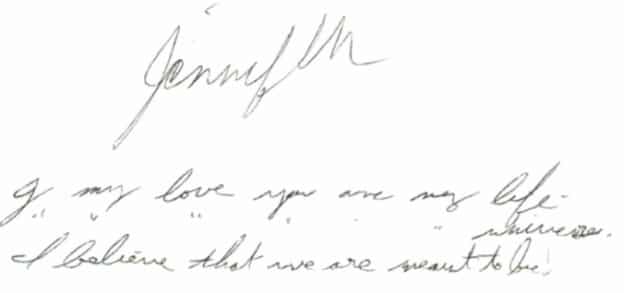 my love you are my life-
" " " " " " universe.
I believe that we are meant to be!